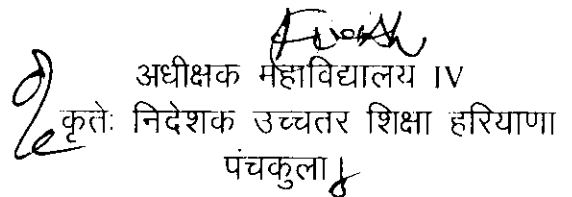 अधीक्षक महाविद्यालय IV
कृतेः निदेशक उच्चतर शिक्षा हरियाणा
पंचकुला